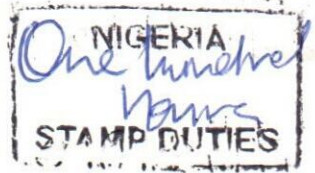 NIGERIA
One hundred
Naira
STAMP DUTIES